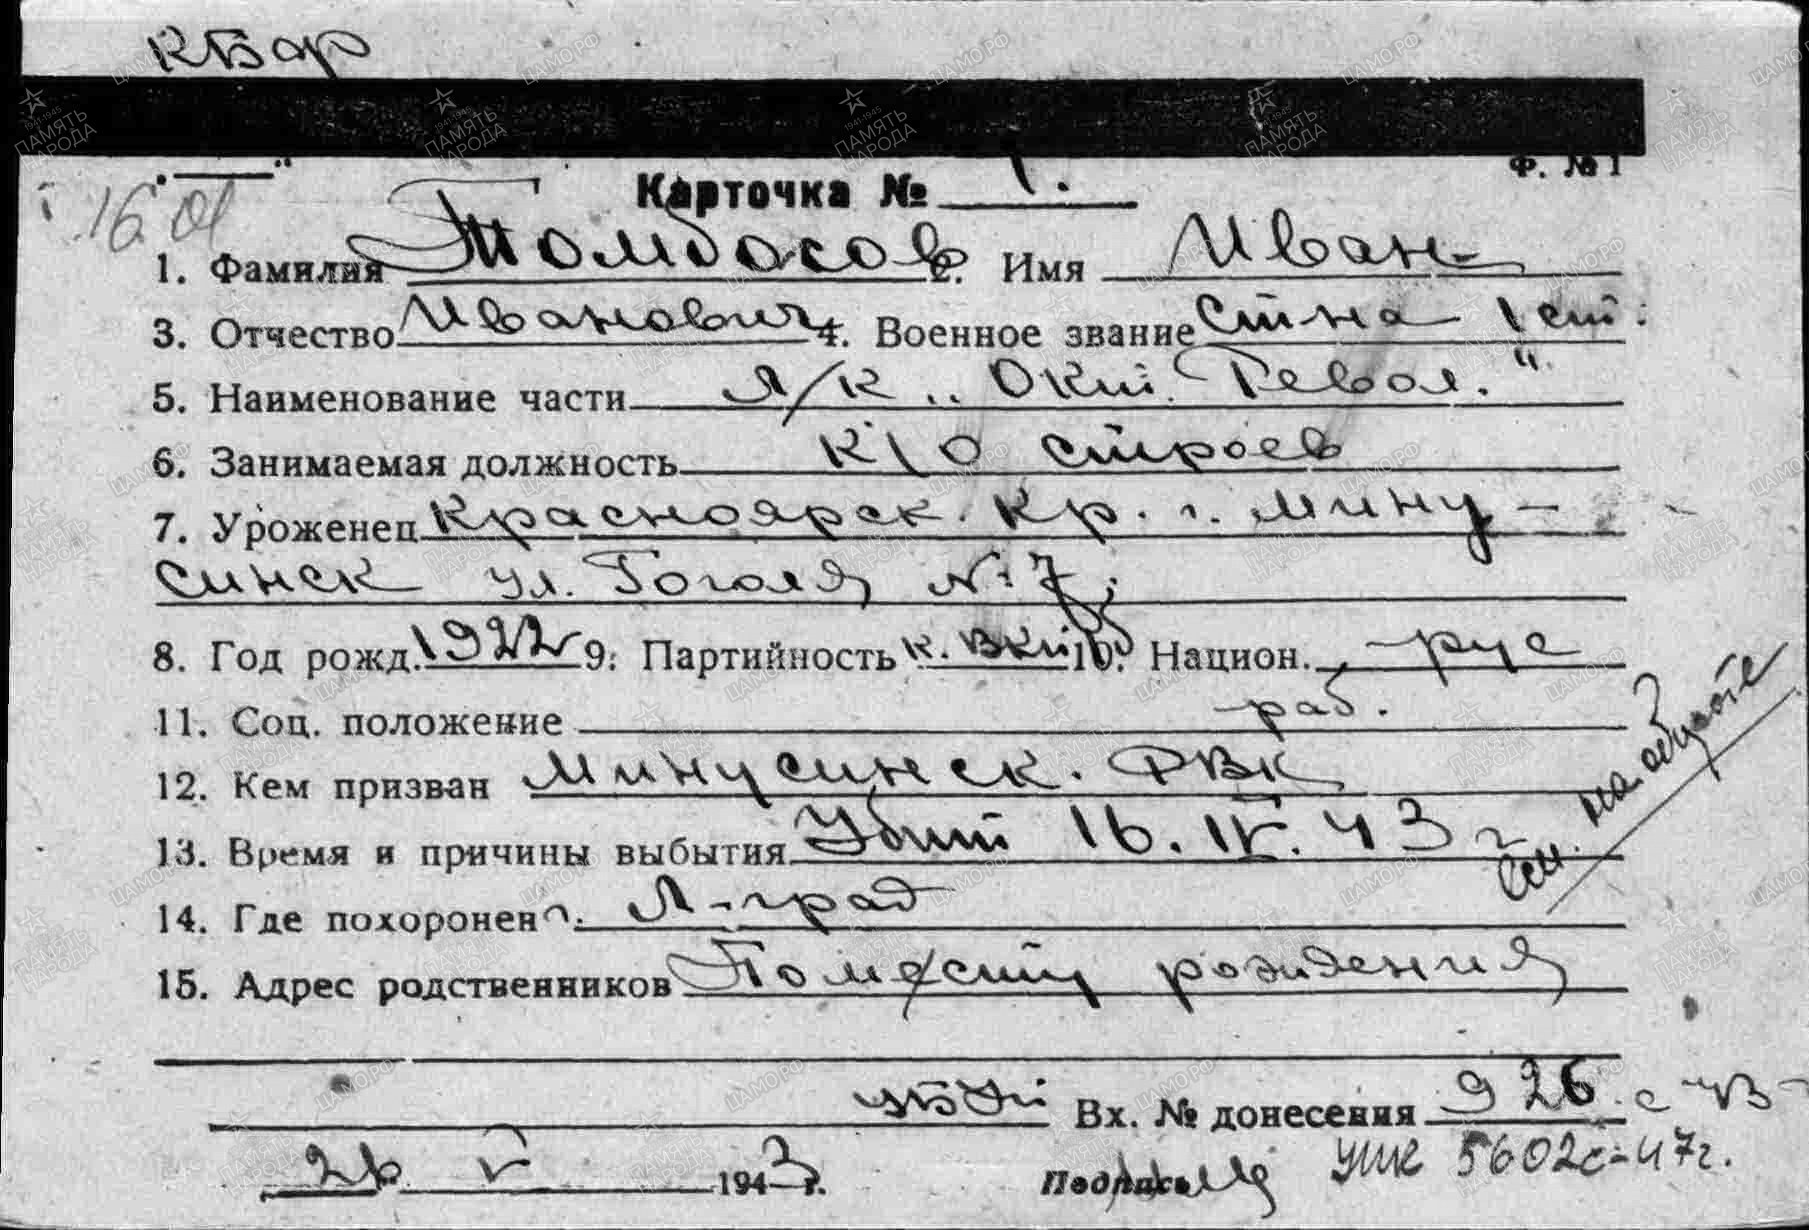 КБар
Ф. № 1
Карточка № 1.
16 01
1. Фамилия Томбасов 2. Имя Иван
3. Отчество Иванович 4. Военное звание Ст-на 1 ст.
5. Наименование части Л/К „Окт. Револ."
6. Занимаемая должность К/О строев
7. Уроженец Красноярск. Кр. г. Мину-
синск ул. Гоголя № 7;
8. Год рожд. 1922 9. Партийность к. ВКП(б) 10. Национ. рус
11. Соц. положение раб.
12. Кем призван Минусинск. РВК
13. Время и причины выбытия Убит 16.IV.43 г
см. на обороте
14. Где похоронен г. Л-град
15. Адрес родственников По месту рождения
Вх. № донесения 926 с 43
26 V 1943 г. Подпись
УПК 5602с-47г.
ПАМЯТЬ НАРОДА
1941-1945
ЦАМО РФ